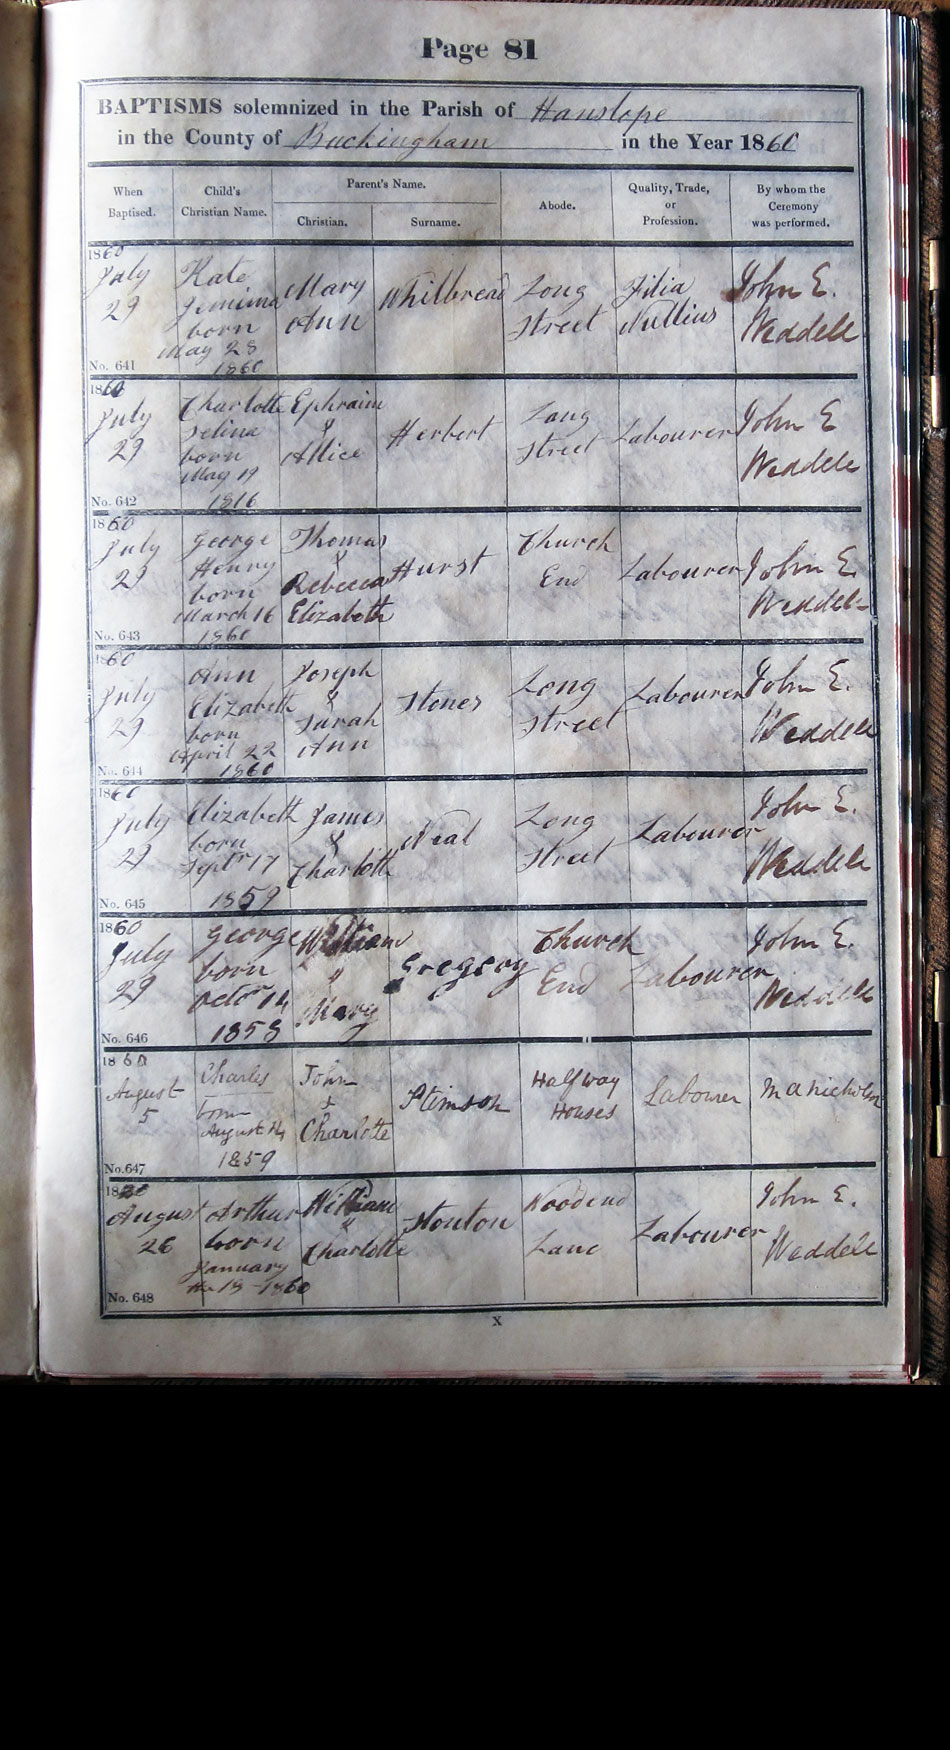 Page 81
BAPTISMS solemnized in the Parish of Hanslope
in the County of Buckingham in the Year 1860
When Baptised.
Child's Christian Name.
Parent's Name.
Christian.
Surname.
Abode.
Quality, Trade, or Profession.
By whom the Ceremony was performed.
1860
July
29
No. 641
Kate
Jemima
born
May 28
1860
Mary
Ann
Whitbread
Long
Street
Filia
Nullius
John E.
Weddell
1860
July
29
No. 642
Charlotte
Selina
born
May 19
1816
Ephraim
&
Allice
Herbert
Long
Street
Labourer
John E
Weddell
1860
July
29
No. 643
George
Henry
born
March 16
1860
Thomas
&
Rebecca
Elizabeth
Hurst
Church
End
Labourer
John E.
Weddell
1860
July
29
No. 644
Ann
Elizabeth
born
April 22
1860
Joseph
&
Sarah
Ann
Stones
Long
Street
Labourer
John E.
Weddell
1860
July
29
No. 645
Elizabeth
born
Septr 17
1859
James
&
Charlotte
Neal
Long
Street
Labourer
John E.
Weddell
1860
July
29
No. 646
George
born
Octor 14
1858
William
"
Mary
Gregory
Church
End
Labourer
John E.
Weddell
1860
August
5
No. 647
Charles
born
August 14
1859
John
+
Charlotte
Stimson
Halfway
Houses
Labourer
M A Nicholson
1860
August
26
No. 648
Arthur
born
January
the 18 - 1860
William
"
Charlotte
Stonton
Woodend
Lane
Labourer
John E.
Weddell
X